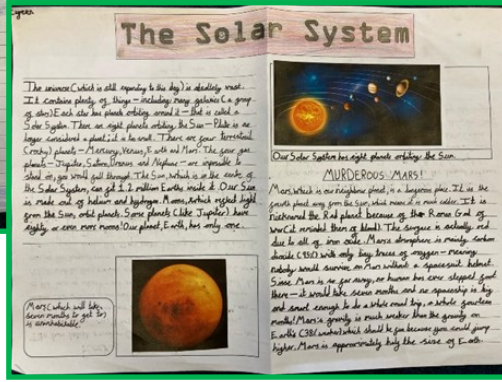 The Solar System
The universe (which is still expanding to this day) is absolutely vast.
It contains plenty of things – including many galaxies (a group
of stars) Each star has planets orbiting around it – that is called a
Solar System. There are eight planets orbiting the Sun – Pluto is no
longer considered a planet; it is too small. There are four terrestrial
(rocky) planets – Mercury, Venus, Earth and Mars. The four gas
planets – Jupiter, Saturn, Uranus and Neptune – are impossible to
stand on; you would fall through. The Sun, which is in the centre of
the Solar System, can fit 1.2 million Earths inside it. Our Sun
is made out of helium and hydrogen. Moons, which reflect light
from the Sun, orbit planets. Some planets (like Jupiter) have
eighty, or even more moons! Our planet, Earth, has only one.
Mars (which will take
seven months to get to)
is uninhabitable
Our Solar System has eight planets orbiting the Sun.
MURDEROUS MARS!
Mars, which is our neighbour planet, is a dangerous place. It is the
fourth planet away from the Sun, which means it is much colder. It is
nicknamed the Red planet because of the Roman God of
war (it reminded them of blood). The surface is actually red
due to all of iron oxide. Mars's atmosphere is mainly carbon
dioxide (95%) with only tiny traces of oxygen – meaning
nobody would survive on Mars without a spacesuit helmet.
Since Mars is so far away, no human has ever stepped foot
there – it would take seven months and no spaceship is big
and smart enough to do a whole round trip, a whole fourteen
months! Mars's gravity is much weaker than the gravity on
Earth's (38% weaker) which should be fun because you could jump
higher. Mars is approximately half the size of Earth.